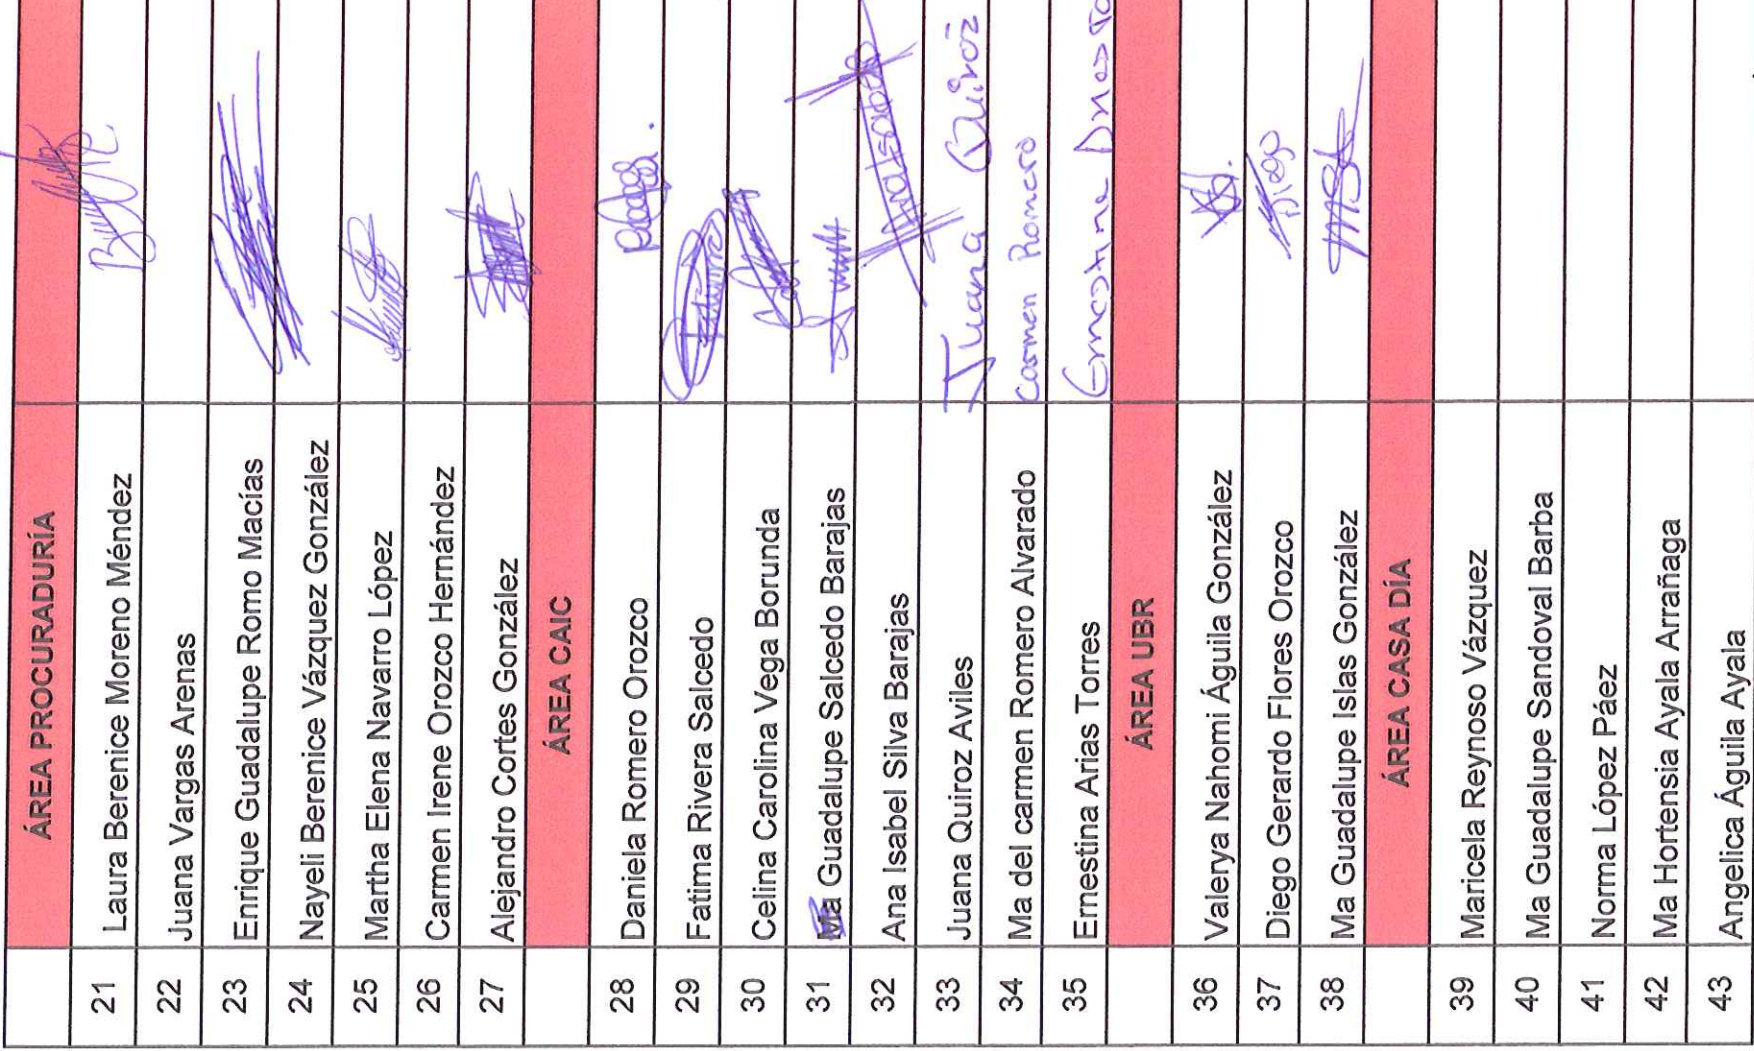 ÁREA PROCURADURÍA
21 Laura Berenice Moreno Méndez
22 Juana Vargas Arenas
23 Enrique Guadalupe Romo Macías
24 Nayeli Berenice Vázquez González
25 Martha Elena Navarro López
26 Carmen Irene Orozco Hernández
27 Alejandro Cortes González
ÁREA CAIC
28 Daniela Romero Orozco
29 Fatima Rivera Salcedo
30 Celina Carolina Vega Borunda
31 Ma Guadalupe Salcedo Barajas
32 Ana Isabel Silva Barajas
33 Juana Quiroz Aviles Juana Quiroz
34 Ma del carmen Romero Alvarado Carmen Romero
35 Ernestina Arias Torres
ÁREA UBR
36 Valerya Nahomi Águila González
37 Diego Gerardo Flores Orozco Diego
38 Ma Guadalupe Islas González
ÁREA CASA DÍA
39 Maricela Reynoso Vázquez
40 Ma Guadalupe Sandoval Barba
41 Norma López Páez
42 Ma Hortensia Ayala Arrañaga
43 Angelica Águila Ayala